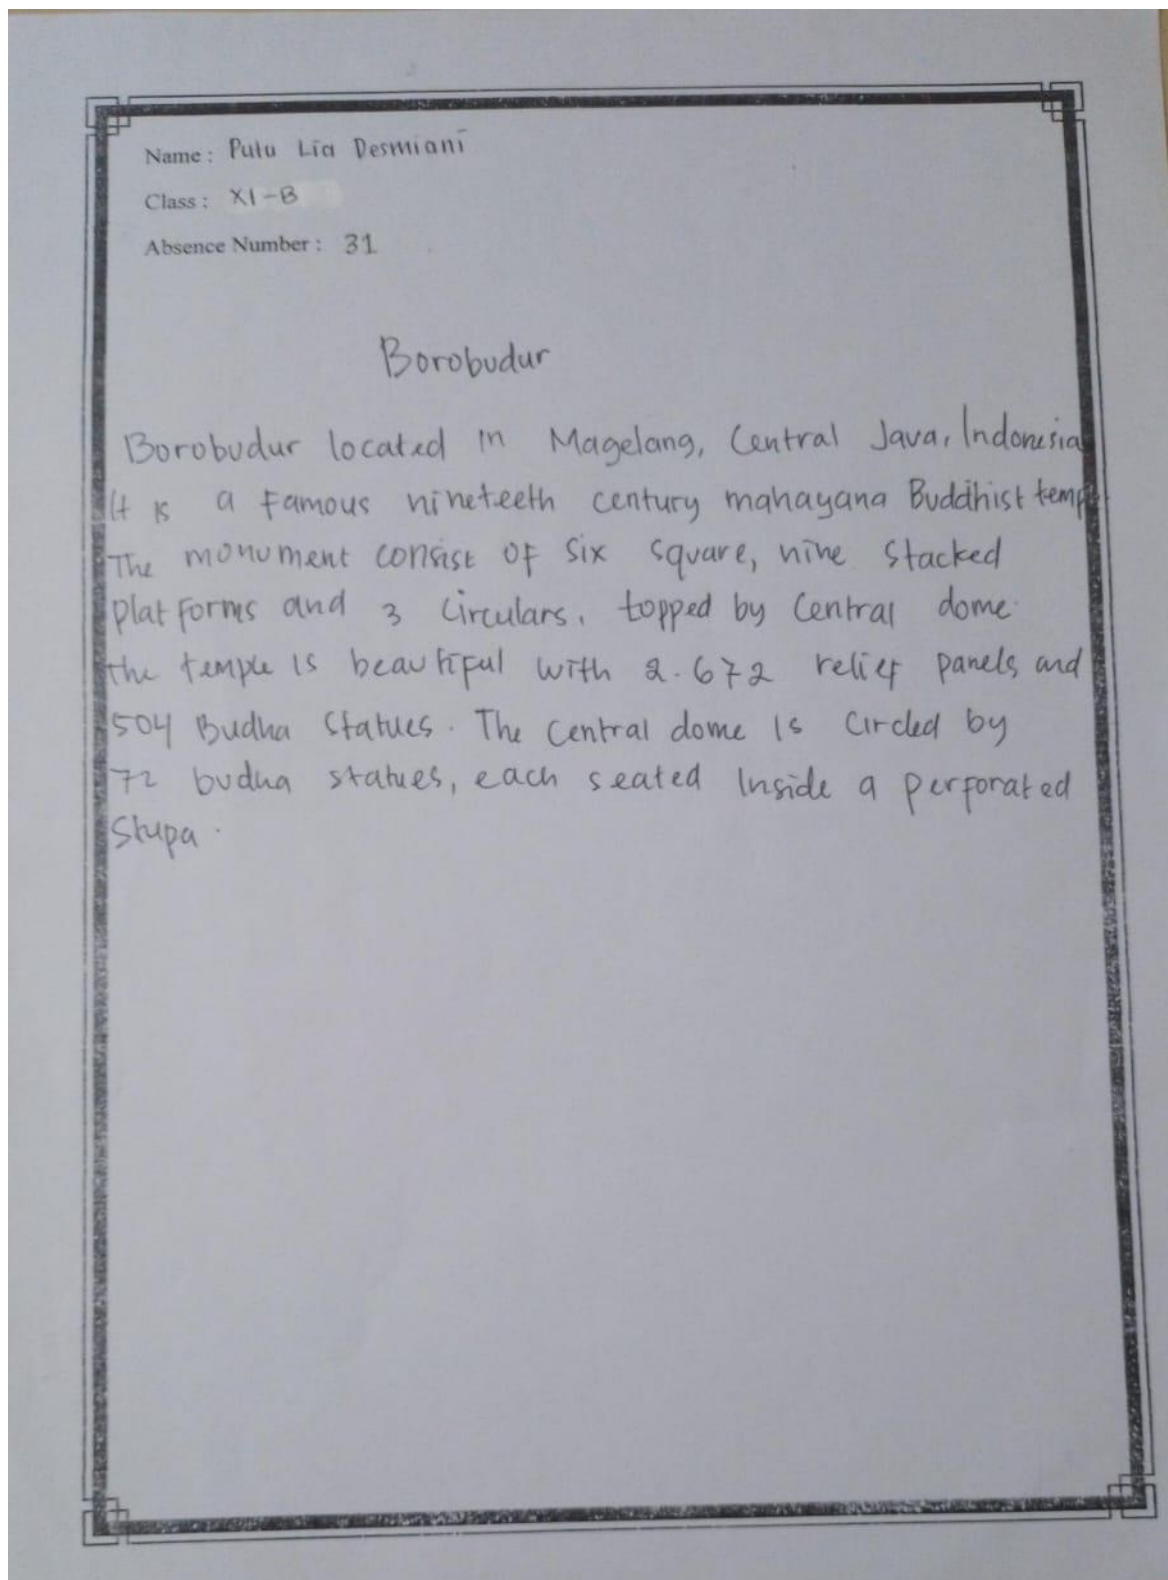 Name : Putu Lia Desmiani
Class : XI-B
Absence Number : 31
Borobudur
Borobudur located in Magelang, Central Java, Indonesia
It is a famous nineteeth century mahayana Buddhist temp
The monument consist of six square, nine stacked
platforms and 3 circulars, topped by Central dome.
the temple is beautiful with 2.672 relief panels and
504 Budha statues. The Central dome is circled by
72 budha statues, each seated Inside a perforated
stupa.